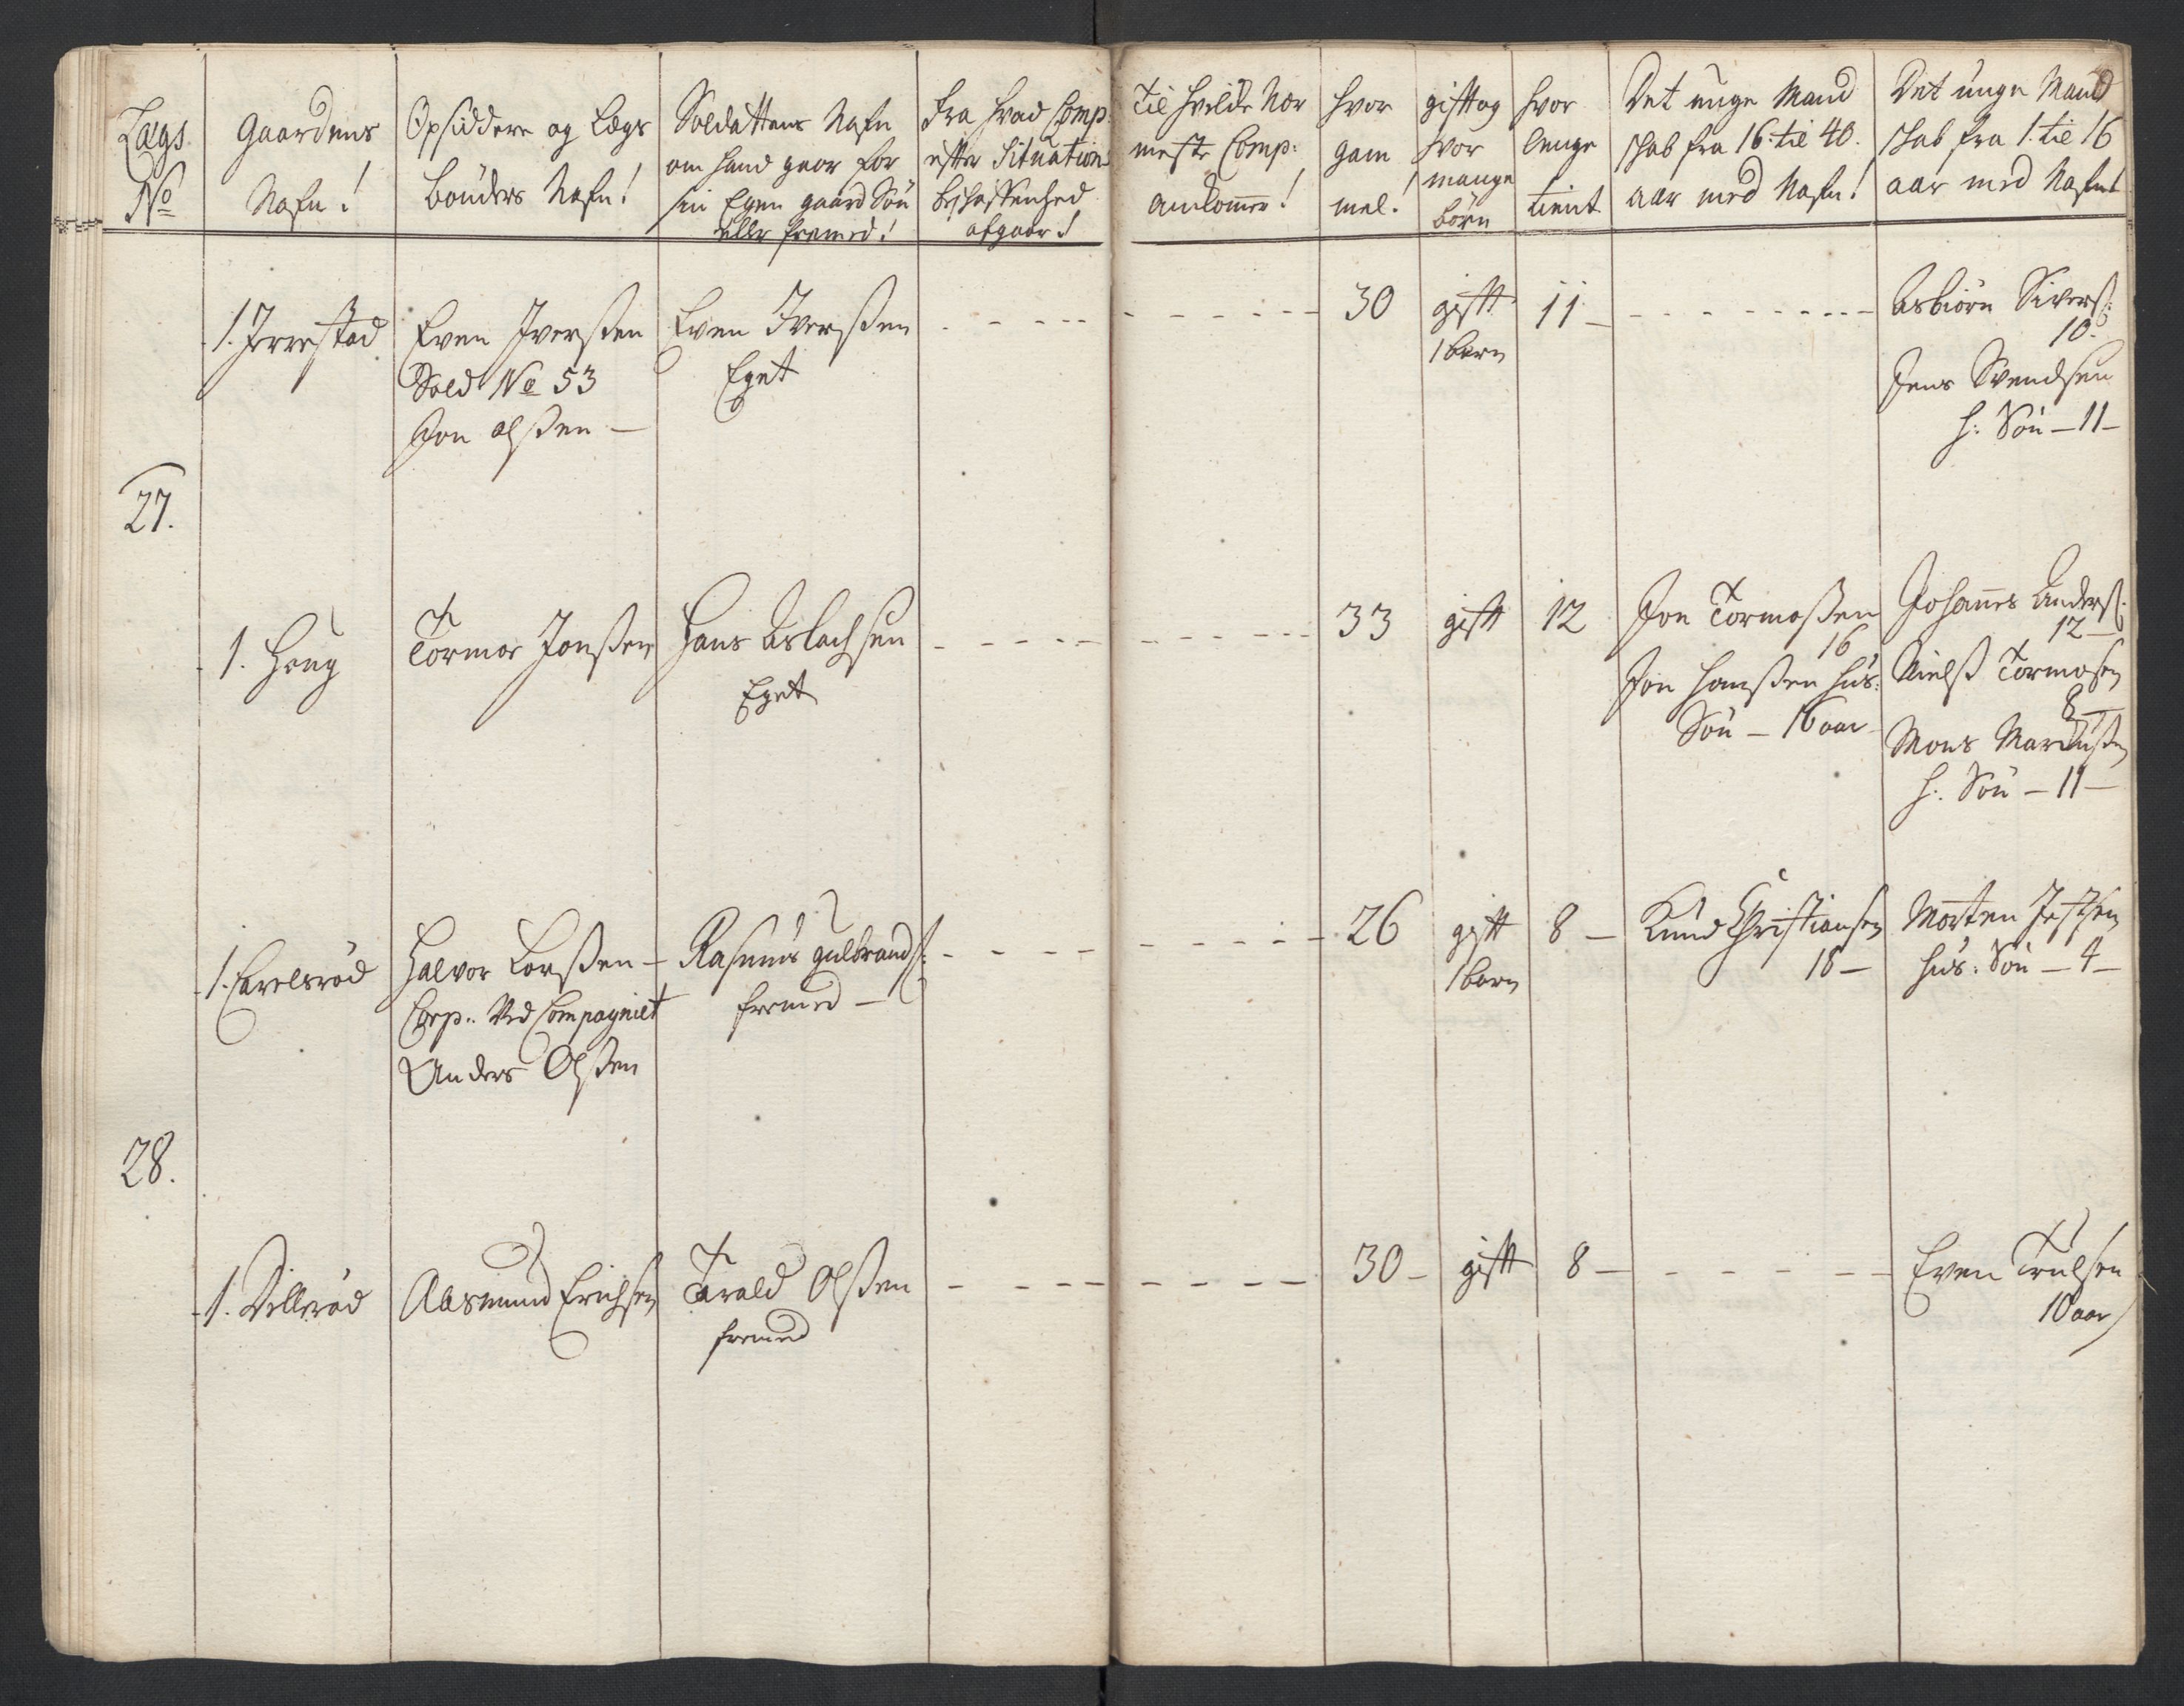 Lægs
No
Gaardens
Nafn!
Opsiddere og Lægs
bønders Nafn!
Soldattens Nafn
om hand gaar for
sin Egen gaard Søn
eller fremed!
Fra hvad Comp:
efter Situations
beskaffenhed
afgaar!
Til hvilde Nær
meste Comp:
ankommer!
hvor
gam
mel!
gift og
hvor
mange
børn
hvor
lenge
tient
Det unge Mand
skab fra 16 til 40.
aar med Nafn!
Det unge Mand
skab fra 1. til 16
aar med Nafn!
1. Jerrestad
Even Iverssen
Sold No 53
Jon olssen —
Even Iverssen
Eget
30
gift
1 barn
11 –
Asbiörn Siverss:
10.
Jens Svendsen
h: Søn – 11 –
27.
1. Houg
Tormor Jonssen
Hans Aslachsen
Eget
33
gift
12
Jon Tormossen
16
Jon Hanssen hus:
Søn – 16 aar
Johannes Anderss:
12 –
Nielss Tormosen
8 –
Mons Marcussen
h: Søn – 11 –
1. Carelsrød
Halvor Larssen –
Corp: Ved Compagniet
Anders Olssen
Rasmus Gulbrands:
fremed –
26
gift
1 barn
8 –
Knud Christiansen
18 –
Morten Jepsen
hus: Søn – 4 –
28.
1. Villerød
Aasmund Erichsen
Tarald Olssen
fremed
30 –
gift
8 –
Even Trulsen
10 aar